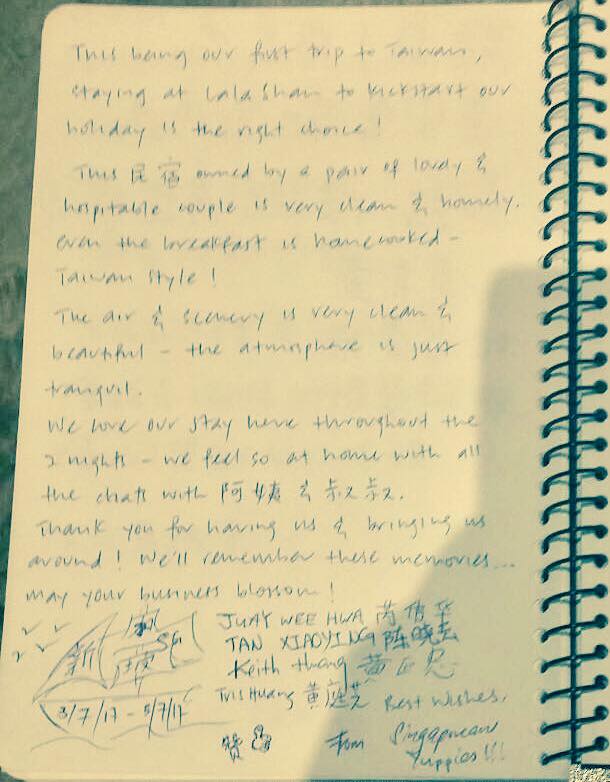 This being our first trip to Taiwan,
staying at Lala Shan to kickstart our
holiday is the right choice!
This 民宿 owned by a pair of lovely &
hospitable couple is very clean & homely.
even the breakfast is homecooked -
Taiwan style!
The air & scenery is very clean &
beautiful - the atmosphere is just
tranquil.
We love our stay here throughout the
2 nights - we feel so at home with all
the chats with 阿姨 & 叔叔.
Thank you for having us & bringing us
around! We'll remember these memories...
may your business blossom!
JUAY WEE HWA
TAN XIAOYING 陈晓
Keith Huang 黄
Iris Huang 黄庭芝
Best wishes,
from Singaporean
Yuppies!!!
新
SG
3/7/17 - 5/7/17
赞